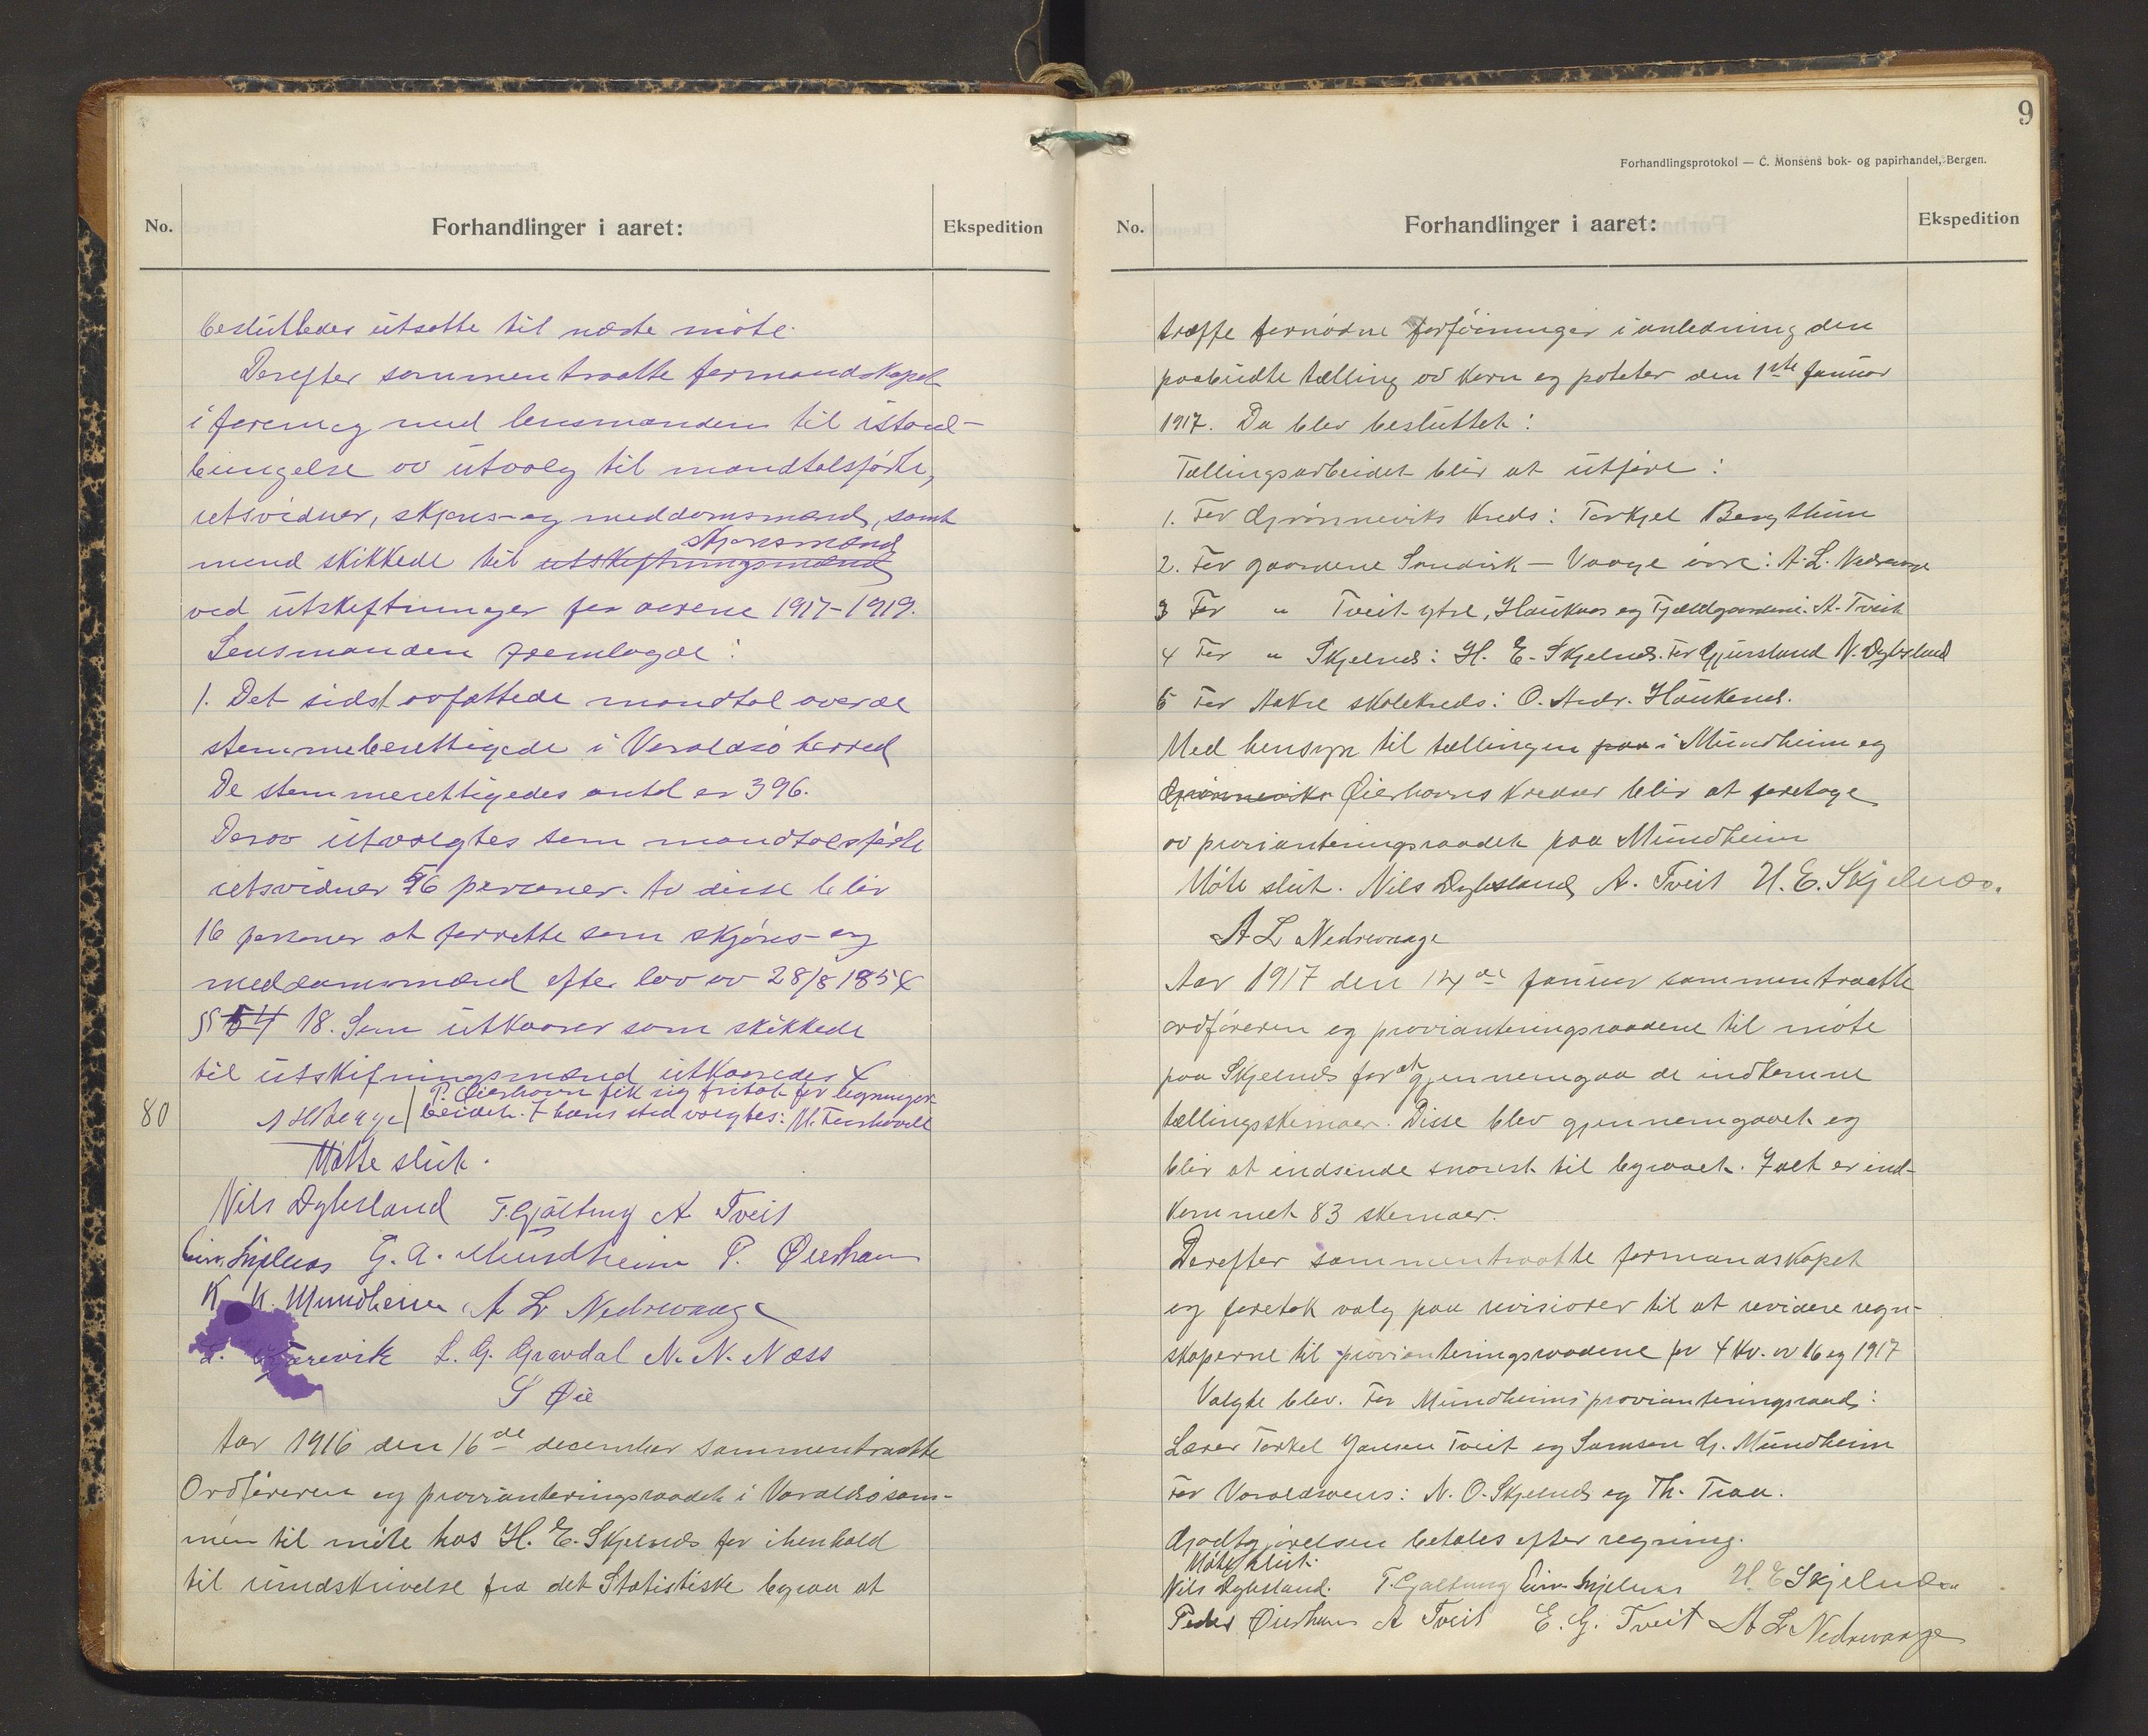 No.
Forhandlinger i aaret:
Ekspedition
besluttedes utsatte til næste møte.
Derefter sammentraatte formandskapet
i forening med lensmanden til istand-
bringelse av utvalg til mandtalsførte,
retsvidner, skjøns- og meddomsmænd, samt
skjønsmænd
mend skikkede til utskiftningsmænd
ved utskiftninger for aarene 1917-1919.
Lensmanden fremlagde:
1. Det sidst avfattede mandtal over de
stemmeberettigede i Varaldsø herred
De stemmerettigedes antal er 396.
Derav utvælgtes som mandtalsførte
retsvidner 56 personer. Av disse blir
16 personer at forrette som skjøns- og
meddomsmænd efter lov av 28/8 1854
§§ 54 18. Som utkaarer som skikkede
til utskifningsmænd utkaaredes 4
P. Øierhavn fik sig fritat for ligningsar-
80
beidet. I hans sted valgtes: M. Teishovell
Møtte slut.
Nils Dyhesland T. Gjaltung A Tveit
Eirv. Skjelnæs G. A. Mundheim P. Øierhavn
K. K. Mundheim A L Nedrevaage
L. G. Gravdal N. N. Næss
S Øie
Aar 1916 den 16de december sammentraatte
Ordføreren og provianteringsraadet i Varaldsø sam-
men til møte hos H. E. Skjelnæs for i henhold
til rundskrivelse fra det Statistiske byraa at
9
Forhandlingsprotokol — C. Monsens bok- og papirhandel, Bergen.
No.
Forhandlinger i aaret:
Ekspedition
træffe fornødne forføininger i anledning den
paabudte tælling av korn og poteter den 1ste januar
1917. Da blev besluttet:
Tællingsarbeidet blir at utføre:
1. For Gjrønneviks kreds: Torkjel Bergthun
2. For gaardene Sandvik — Vaage øvre: A. L. Nedrevaage
3 For " Tveit ytre, Haukaas og Fjældgaardene: A. Tveit
4 For " Skjelnæs: H. E. Skjelnæs. For Gjuvsland N. Dyhesland
5 For Aakre skolekreds: O. Andr. Haukenæs.
Med hensyn til tællingen paa i Mundheim og
Gjrønneviks Øierhavns kredser blir at foretage
av provianteringsraadet paa Mundheim
Møte slut. Nils Dyhesland A. Tveit H. E. Skjelnæs.
A L Nedrevaage
Aar 1917 den 14de januar sammentraatte
ordføreren og provianteringsraadene til møte
paa Skjelnæs for at gjennemgaa de indkomne
tællingsskemaer. Disse blev gjennemgaaet og
blir at indsende snarest til byraaet. Ialt er ind-
kommet 83 skemaer.
Derefter sammentraatte formandskapet
og foretok valg paa revisiorer til at revidere regn-
skaperne til provianteringsraadene for 4 kv. av 16 og 1917
Valgte blev. For Mundheims provianteringsraad:
Lærer Torkel Jansen Tveit og Samson G. Mundheim
For Varaldsøens: N. O. Skjelnæs og Th. Traa.
Godtgjørelsen betales efter regning.
Møte slut.
Nils Dyhesland. T. Gjaltung Eirv. Skjelnæs H E Skjelnæs
Peder Øierhavn A Tveit E. G. Tveit A L Nedrevaage